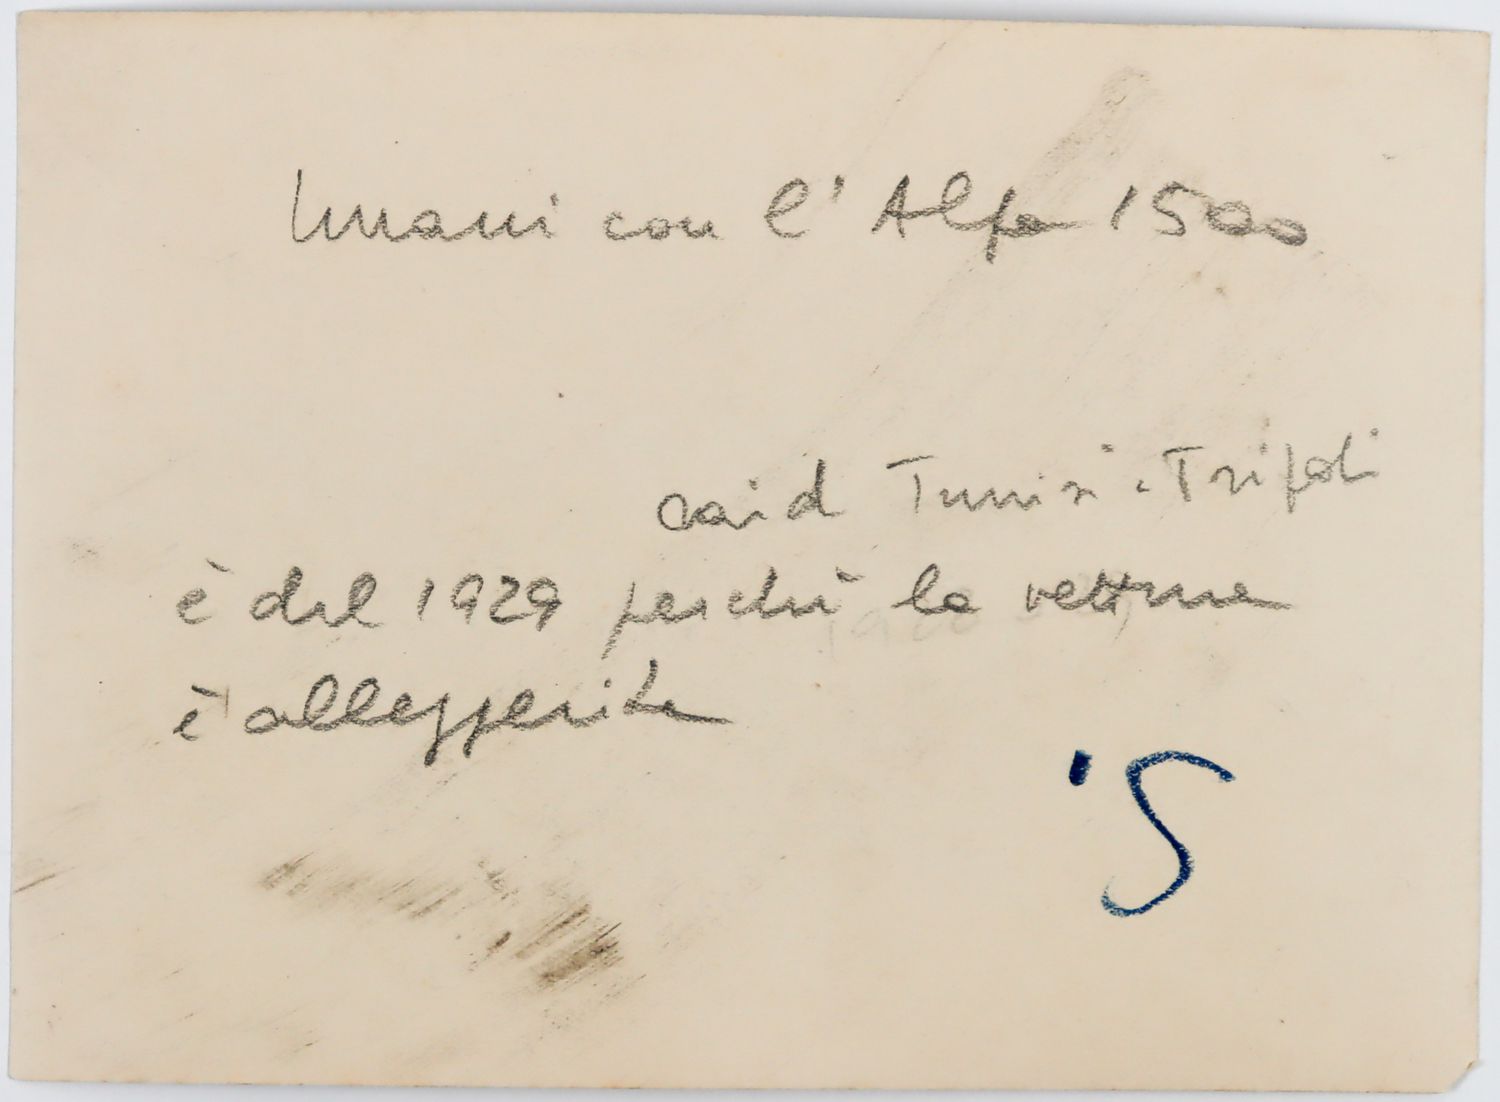 con l'Alfa 1500
raid Tunisi-Tripoli
è del 1929 perché la vettura
è alleggerita
'S